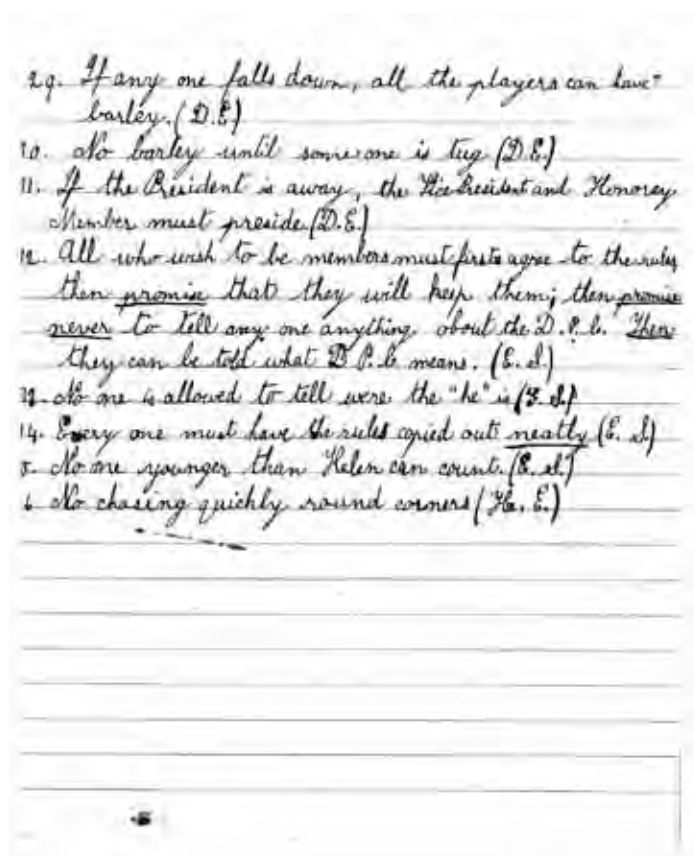 29. If any one falls down, all the players can have
barley. (D.E.)
10. No barley until some one is tug (D.E.)
11. If the President is away, the Vice President and Honorey
Member must preside. (D.E.)
12. All who wish to be members must firsts agree to the rules
then promise that they will keep them; then promise
never to tell any one anything about the D.P.C. Then
they can be told what D P.C means. (E. S.)
13. No one is allowed to tell were the "he" is (E. S.)
14. Every one must have the rules copied out neatly (E. S)
5. No one younger than Helen can count. (E. S.)
6 No chasing quickly round corners (He. E.)